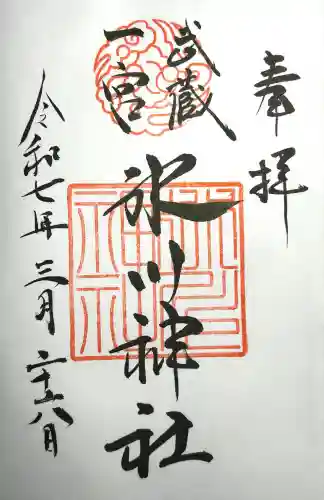 奉拝
武蔵
一宮
氷川神社
令和七年三月二十八日